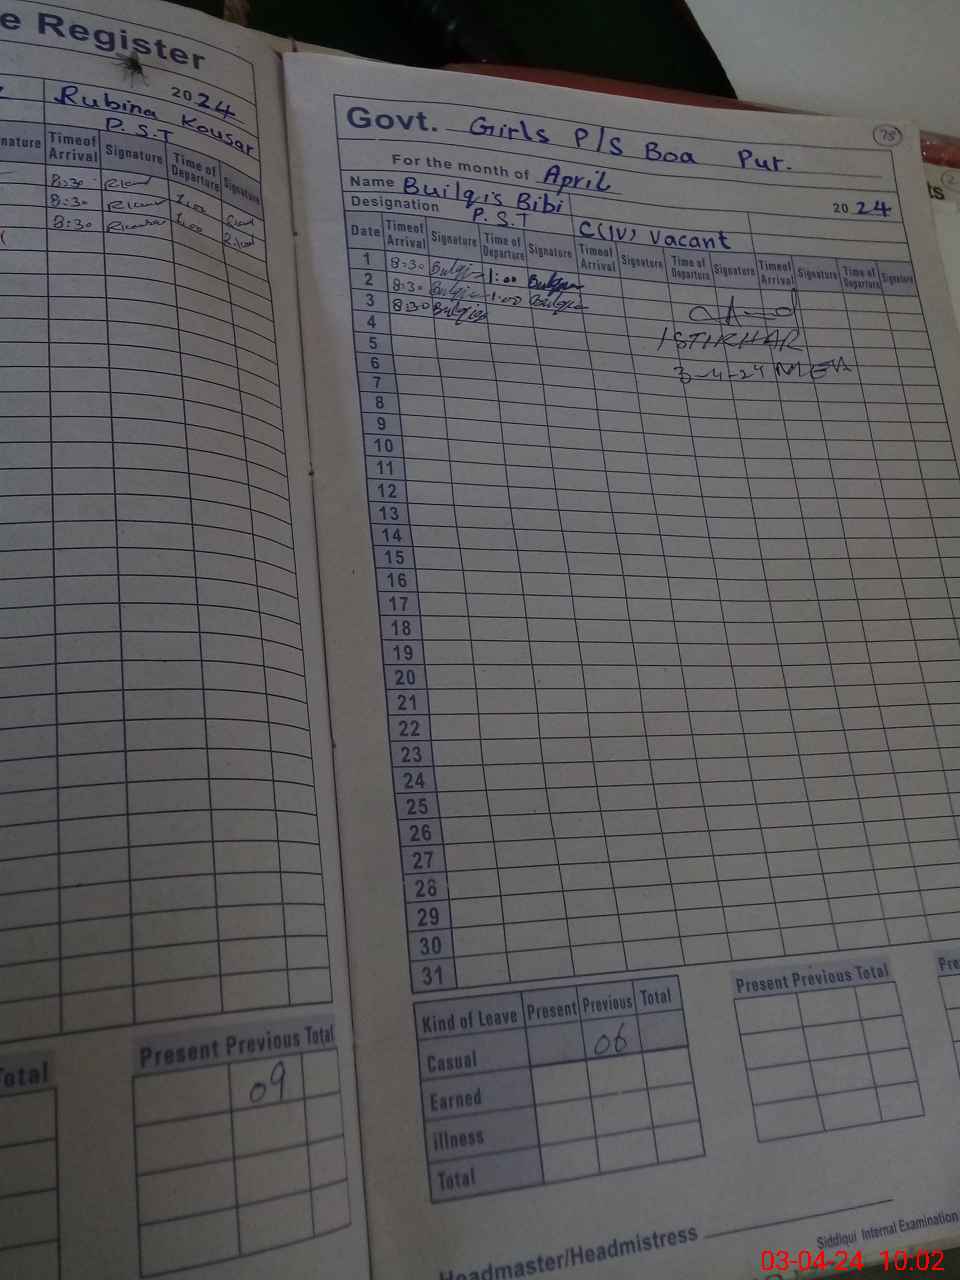 e Register
2024
Rubina Kousar
P.S.T
nature Timeof Arrival Signature Time of Departure Signature
8:30 1:00
8:30 1:00
8:30
Total
Present Previous Total
09
78
Govt. Girls P/S Boa Pur.
For the month of April 2024
Name Builqis Bibi
Designation P.S.T C(IV) Vacant
Date Timeof Arrival Signature Time of Departure Signature Timeof Arrival Signature Time of Departure Signature Timeof Arrival Signature Time of Departure Signature
1 8:30 Bulqis 1:00 Bulqis
2 8:30 Bulqis 1:00 Bulqis
3 8:30 Bulqis
4
5 ISTIKHAR
6 3-4-24 MEA
7
8
9
10
11
12
13
14
15
16
17
18
19
20
21
22
23
24
25
26
27
28
29
30
31
Kind of Leave Present Previous Total
Casual 06
Earned
illness
Total
Present Previous Total
Pre
Headmaster/Headmistress
Siddiqui Internal Examination
03-04-24 10:02